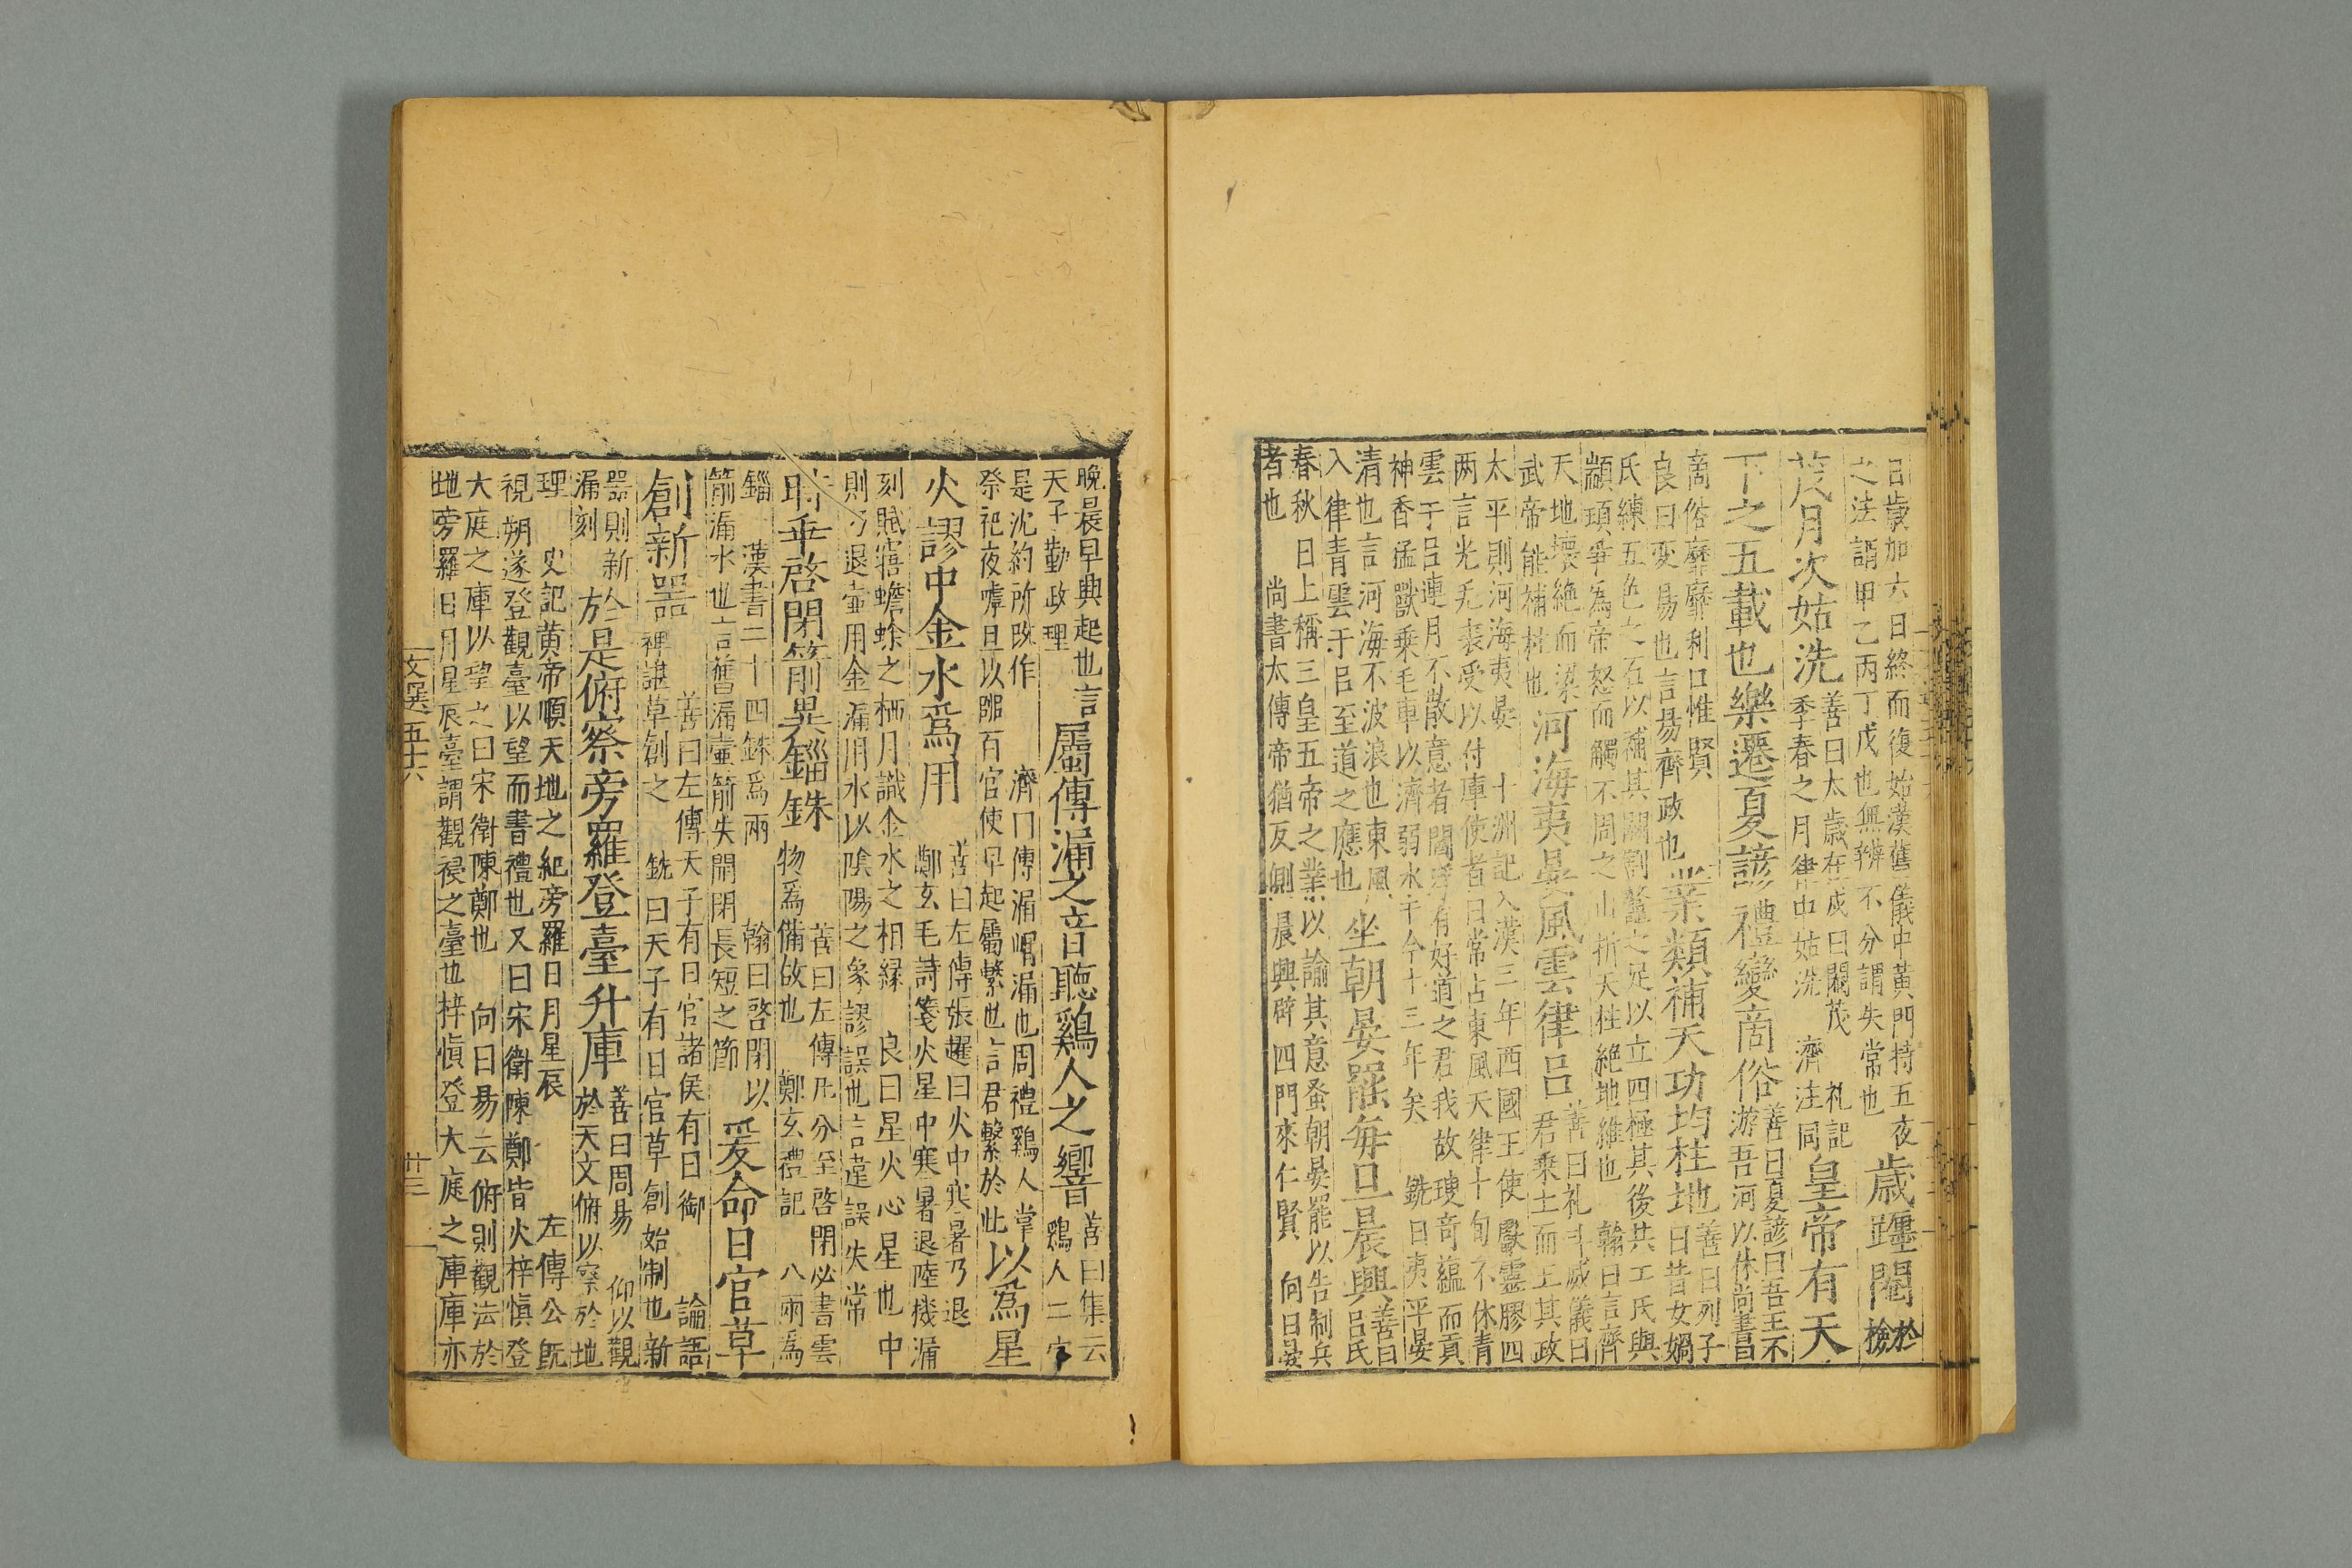 呂歲加六日終而復始漢舊儀中黃門持五夜
之法謂甲乙丙丁戊也無辨不分謂失常也
歲躔閹
於
撿
茂月次姑洗
善曰太歲在戌曰閹茂 礼記
季春之月律中姑洗 濟注同
皇帝有天
下之五載也樂遷夏諺禮變商俗
善曰夏諺曰吾王不
游吾河以休尚書曰
商俗靡靡利口惟賢
良曰变易也言易齊政也
業類補天功均柱地
善曰列子
曰昔女媧
氏練五色之石以補其闕斷鼇之足以立四極其後共工氏與
顓頊爭為帝怒而觸不周之山折天柱絕地維也 翰曰言齊
天地壞絕而梁
武帝能補柱也
河海夷晏風雲律呂
善曰礼斗威儀曰
君乗土而王其政
太平則河海夷晏 十洲記入漢三年西國王使獻靈膠四
两言光毛裘受以付庫使者曰常占東風天律十旬不休青
雲于呂連月不散意者閻浮有好道之君我故瓊竒蘊而貢
神香猛獸乗毛車以濟弱水于今十三年矣 銑曰夷平晏
清也言河海不波浪也東風
入律青雲于呂至道之應也
坐朝晏罷每旦晨興
善曰
呂氏
春秋 曰上稱三皇五帝之業以諭其意蚤朝晏罷以告制兵
者也 尚書太傳帝猶反側晨興辟四門來仁賢 向曰晏
晚晨早興起也言
天子勤政理
屬傳漏之音聽鷄人之響
善曰集云
鷄人二字
是沈約所改作 濟曰傳漏唱漏也周禮鷄人掌
祭祀夜嘑旦以嘂百官使早起屬繫也言君繫於此
以爲星
火謬中金水爲用
善曰左傳張趯曰火中寒暑乃退
鄭玄毛詩箋火星中寒暑退陸機漏
刻賦寤蟾蜍之栖月識金水之相緣 良曰星火心星也中
則乃退壷用金漏用水以隂陽之象謬誤也言違誤失常
時乖啓閉箭異錙銖
善曰左傳凡分至啓閉必書雲
物爲備故也 鄭玄禮記 八兩爲
錙 漢書二十四銖爲兩 翰曰啓閉以
箭漏水也言舊漏壷箭失開閉長短之節
爰命日官草
創新噐
善曰左傳天子有日官諸侯有日御 論語
裨諶草創之 銑曰天子有日官草創始制也新
噐則新
漏刻
於是俯察旁羅登臺升庫
善曰周易 仰以觀
於天文俯以察於地
理 史記黃帝順天地之紀旁羅日月星辰 左傳公旣
視朔遂登觀臺以望而書禮也又曰宋衛陳鄭皆火梓愼登
大庭之庫以望之曰宋衛陳鄭也 向曰易云俯則觀法於
地旁羅日月星辰臺謂觀祲之臺也梓愼登大庭之庫庫亦
文選五十六
廿三